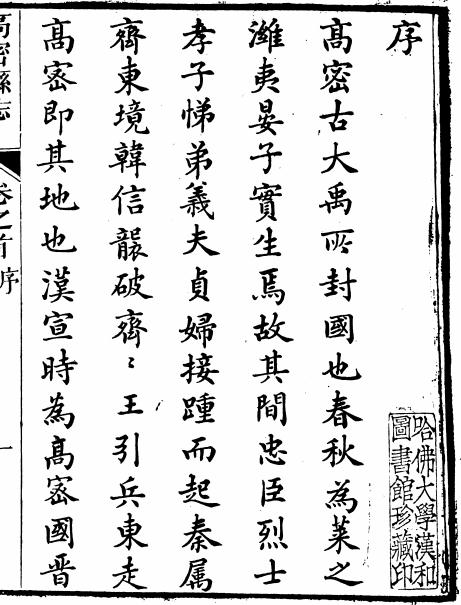 序
高密古大禹所封國也春秋為萊之
濰夷晏子實生焉故其間忠臣烈士
孝子悌弟義夫貞婦接踵而起秦属
齊東境韓信襲破齊〻王引兵東走
高密即其地也漢宣時為高密國晋
高密縣志
卷之首 序
一
哈佛大學漢和
圖書館珍藏印